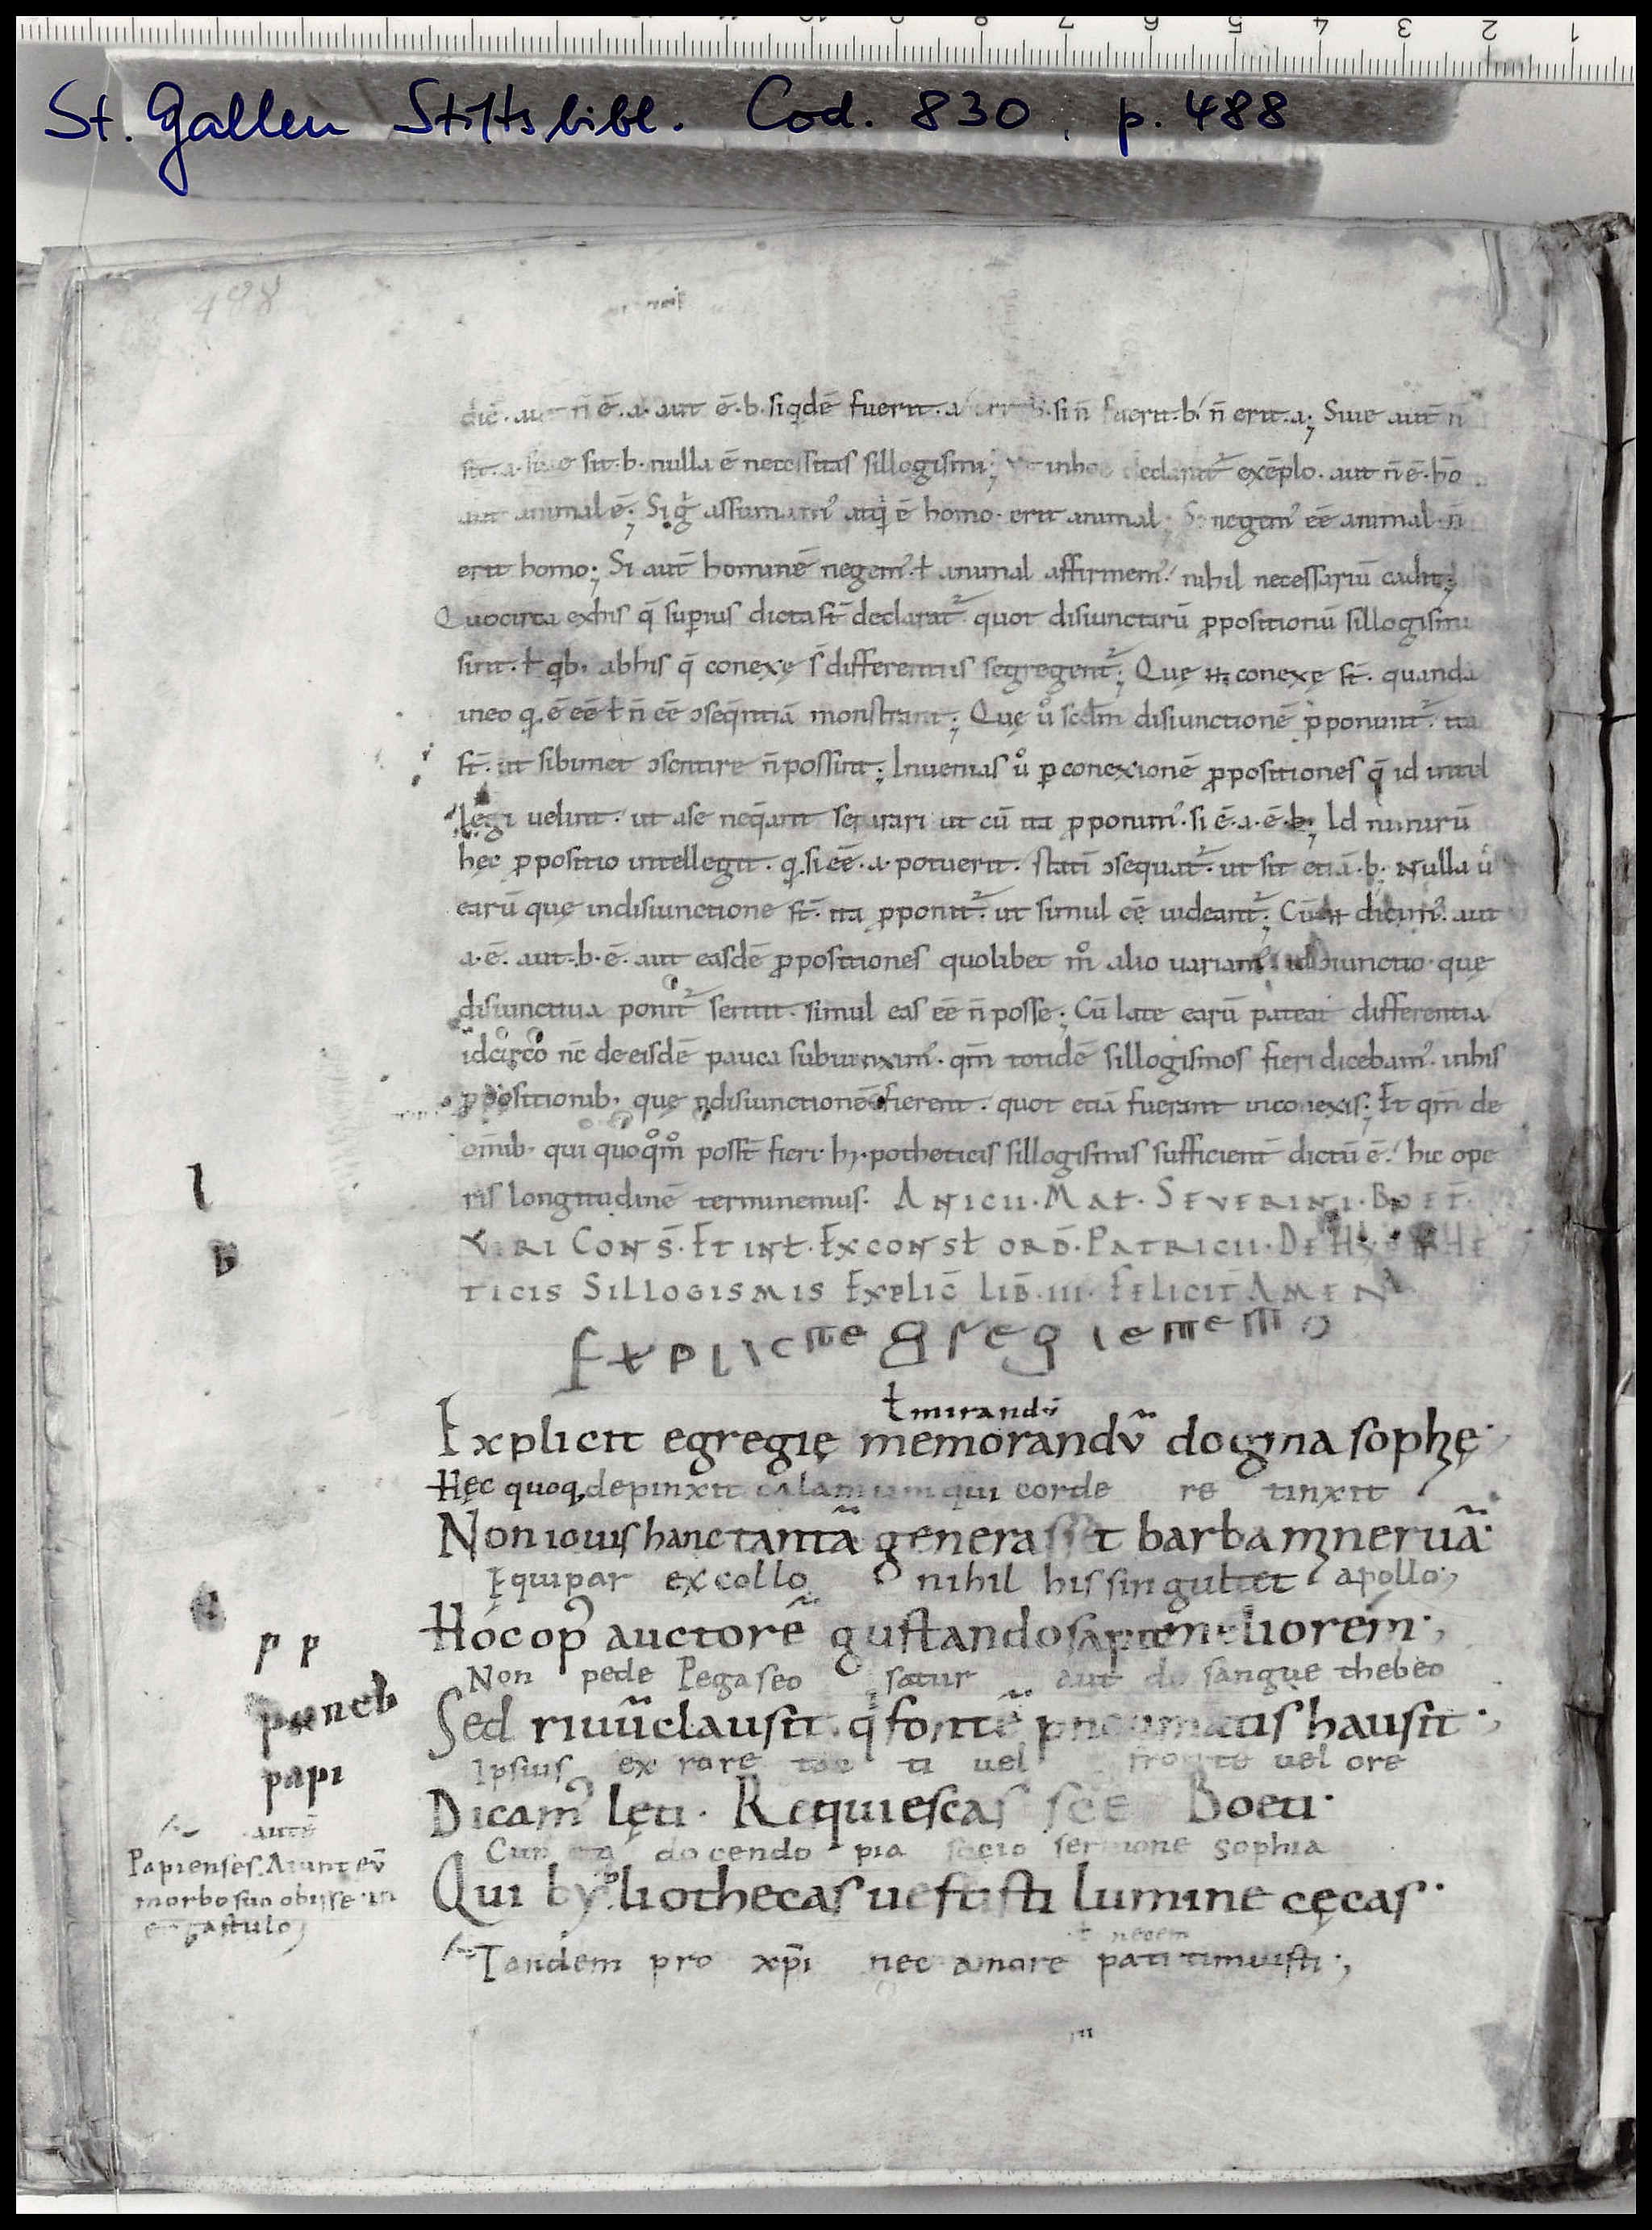 1 2 3 4 5 6 7 8 9 10 11
St. Gallen Stiftsbibl. Cod. 830, p. 488
498
dic̄. aut n̄ ē. a. aut ē. b. siq̇dē fuerit. a b. si n̄ fuerit. b. n̄ erit. a; Siue aut̄ n̄
sit. a. siue sit. b. nulla ē necessitas sillogismi; inhoc declarat᷑ exēplo. aut n̄ ē. hō
aut animal ē; Si g̊ assumam᷒ atq̇ ē homo. erit animal; Si negem᷒ eē animal. n̄
erit homo; Si aut̄ hominē negem᷒. ł animal affirmem᷒. nihil necessariū cadit;
Quocirca exhis q̄ superius dicta st̄ declarat᷑ quot disiunctarū ꝓpositionū sillogismi
sint. ł qb; abhis q̄ conexę s̄ differentiis segregent᷑; Quę conexę st̄. quandā
ineo q. ē eē ł n̄ eē ɔseq̄ntiā monstrant; Quę ů scdm̄ disiunctionē ꝓponunt᷑. ita
st̄. ut sibimet ɔsentire n̄ possint; Inuenias ů ꝑ conexionē ꝓpositiones q̄ id intel
legi uelint. ut ase neq̄ant separari ut cū ita ꝓponim᷒. si ē. a. ē. b; Id nimirū
hęc ꝓpositio intellegit. q. si eē. a. potuerit. statī ɔsequat᷑. ut sit etiā. b; Nulla ů
earū quę indisiunctione st̄. ita ꝓponit᷑. ut simul eē uideant᷑; Cū dicim᷒. aut
a. ē. aut. b. ē. aut easdē ꝓpositiones quolibet m̊ alio uariam᷒ quę
disiunctiua ponit᷑ sentit. simul eas eē n̄ posse; Cū late earū pateat differentia.
idcirco nc̄ de eisdē pauca subiunxim᷒. qm̄ totidē sillogismos fieri dicebam᷒. inhis
ꝓpositionib; quę disiunctionē fierent. quot etiā fuerant inconexis; Et qm̄ de
om̄ib; qui quoq̊m̊ posst̄ fieri hypotheticis sillogismis sufficient̄ dictū ē. hic ope
ris longitudinē terminemus. ANICII. MAŁ. SEVERINI. BOEŁ.
VIRI CONS̄. ET INŁ. EXCONSŁ ORD̄. PATRICII. DE HYPOTHE
TICIS SILLOGISMIS EXPLIC̄ LIB̄. III. FELICIT̄ AMEN
Explicit egregie memo
ł mirandū
Explicit egregię memorandū dogma sophę.
Hęc quoq; depinxit calamum qui corde re tinxit
Non iouis hanc tantā generasset barba mineruā.
Ęquipar ex collo nihil his singultiet apollo;
Hoc op᷒ auctorē gustando sapit meliorem;
Non pede Pegaseo satur aut de sangue thebeo
Sed riuū clausit. q̇ fontē pneumatis hausit;
Ipsius ex rore tac ti uel fronte uel ore
Dicam᷒ lęti. Requiescas sc̄e Boeti.
docendo pia socio sermone sophia
Qui bybliothecas uestisti lumine cęcas.
ł necem
Tandem pro xp̄i nec amore pati timuisti;
l
b
p p
papi
autē
Papienses. Aiunt eū
morbo suo obiisse in
ergastulo;